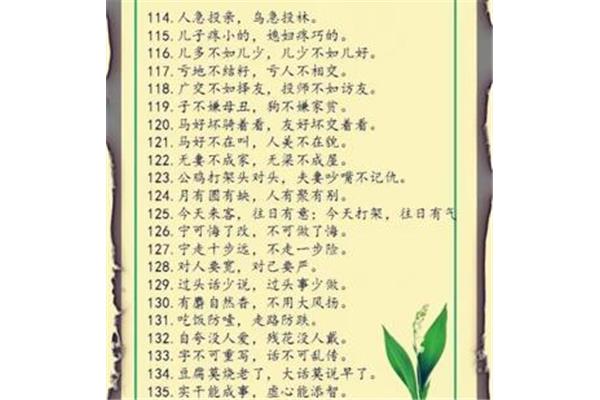 114.人急投亲，鸟急投林。
115.儿子疼小的，媳妇疼巧的。
116.儿多不如儿少，儿少不如儿好。
117.亏地不结籽，亏人不相交。
118.广交不如择友，投师不如访友。
119.子不嫌母丑，狗不嫌家贫。
120.马好坏骑着看，友好坏交着看。
121.马好不在叫，人美不在貌。
122.无妻不成家，无梁不成屋。
123.公鸡打架头对头，夫妻吵嘴不记仇。
124.月有圆有缺，人有聚有别。
125.今天来客，往日有意；今天打架，往日有气
126.宁可悔了改，不可做了悔。
127.宁走十步远，不走一步险。
128.对人要宽，对己要严。
129.过头话少说，过头事少做。
130.有麝自然香，不用大风扬。
131.吃饭防噎，走路防跌。
132.自夸没人爱，残花没人戴。
133.字不可重写，话不可乱传。
134.豆腐莫烧老了，大话莫说早了。
135.实干能成事，虚心能添智。